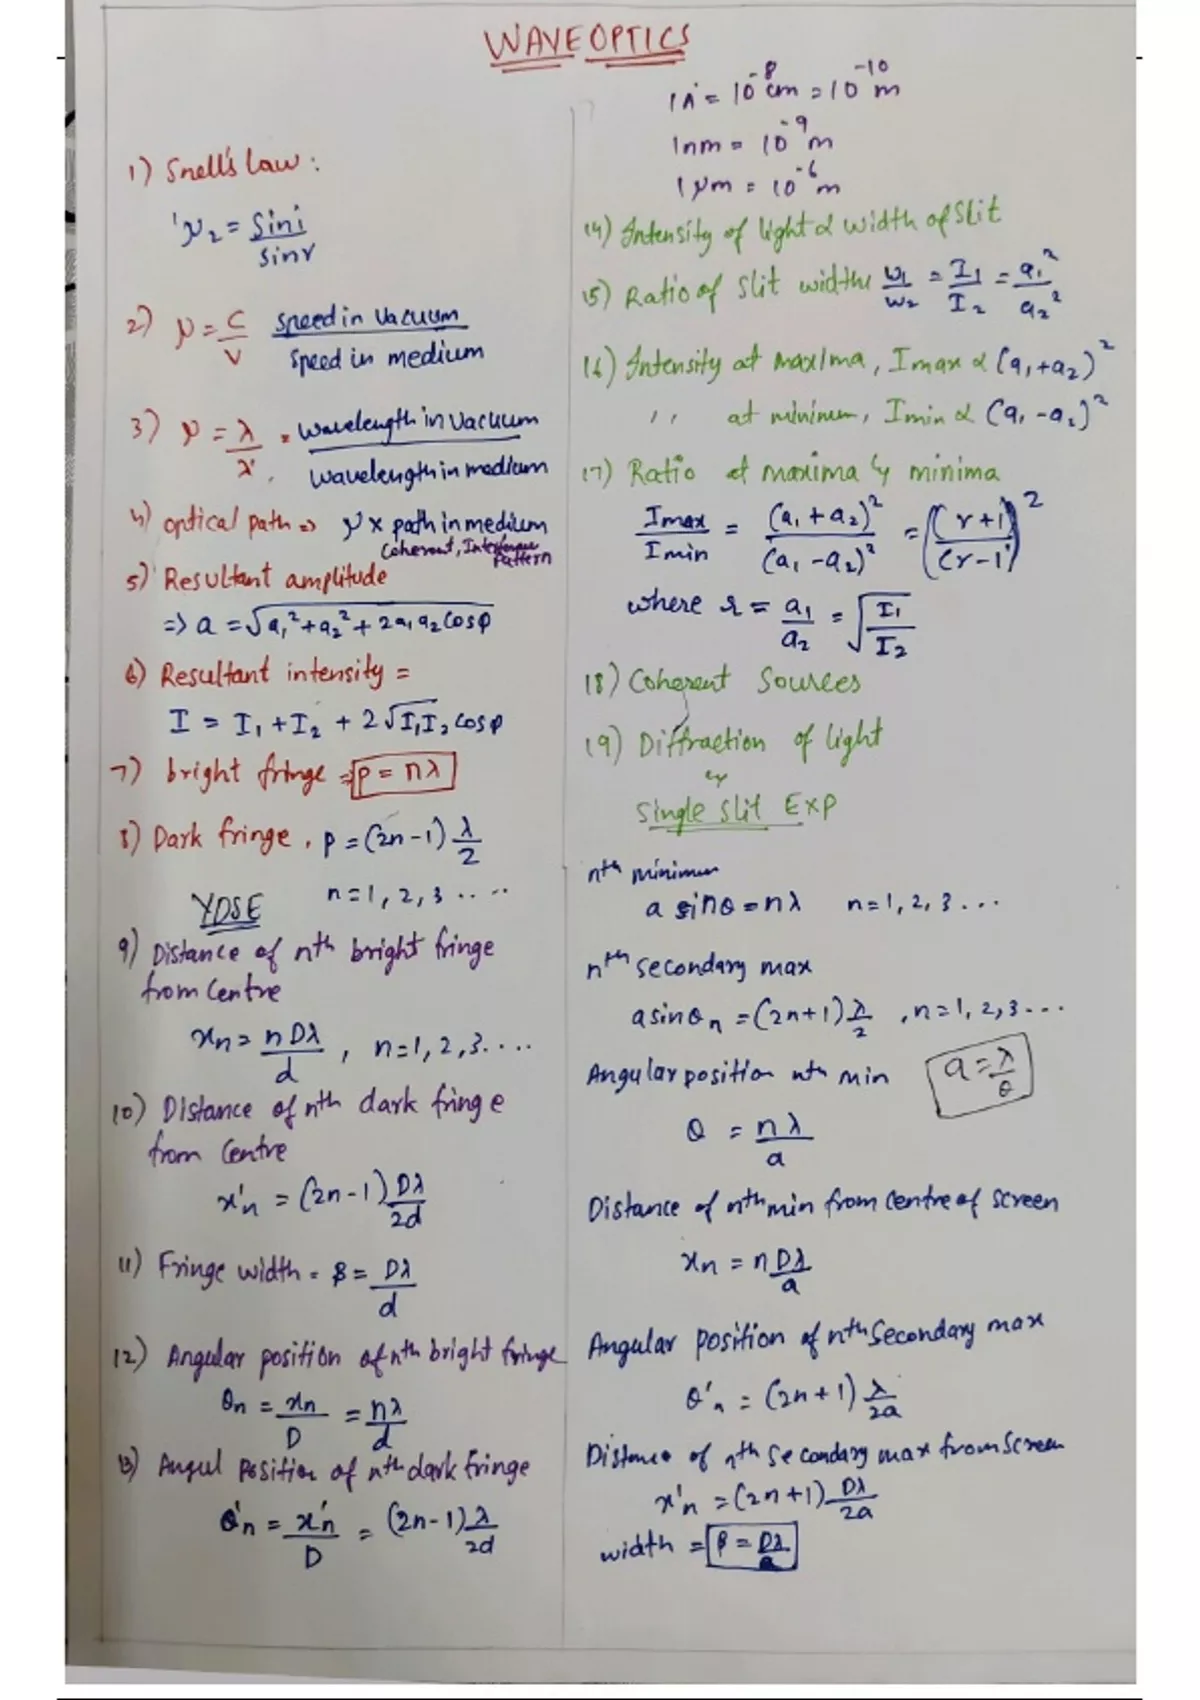 WAVE OPTICS
1) Snell's Law :
¹μ₂ = Sin i / sin r
2) μ = C / V speed in vacuum / speed in medium
3) μ = λ / λ' = wavelength in vacuum / wavelength in medium
4) optical path => μ x path in medium
Coherent, Interference Pattern
5) Resultant amplitude
=> a = √(a₁² + a₂² + 2a₁a₂ cosφ)
6) Resultant intensity =
I = I₁ + I₂ + 2√(I₁I₂) cosφ
7) bright fringe => p = nλ
8) Dark fringe, p = (2n-1) λ/2
n = 1, 2, 3 .....
YDSE
9) Distance of nth bright fringe
from Centre
xn = nDλ / d , n = 1, 2, 3.....
10) Distance of nth dark fringe
from Centre
x'n = (2n-1) Dλ / 2d
11) Fringe width = β = Dλ / d
12) Angular position of nth bright fringe
θn = xn / D = nλ / d
13) Angul position of nth dark fringe
θ'n = x'n / D = (2n-1) λ / 2d
1A° = 10⁻⁸ cm = 10⁻¹⁰ m
1nm = 10⁻⁹ m
1μm = 10⁻⁶ m
14) Intensity of light α width of Slit
15) Ratio of slit widths w₁/w₂ = I₁/I₂ = a₁²/a₂²
16) Intensity at maxima, Imax α (a₁+a₂)²
,, at minimum, Imin α (a₁-a₂)²
17) Ratio at maxima & minima
Imax / Imin = (a₁+a₂)² / (a₁-a₂)² = ((r+1) / (r-1))²
where r = a₁/a₂ = √(I₁/I₂)
18) Coherent Sources
19) Diffraction of light
&
Single slit Exp
nth minimum
a sinθ = nλ n = 1, 2, 3 ...
nth secondary max
a sinθn = (2n+1) λ/2 , n = 1, 2, 3 ...
Angular position nth min
a = λ/θ
θ = nλ / a
Distance of nth min from centre of screen
xn = n Dλ / a
Angular position of nth Secondary max
θ'n = (2n+1) λ / 2a
Distance of nth secondary max from Screen
x'n = (2n+1) Dλ / 2a
width = β = Dλ / a